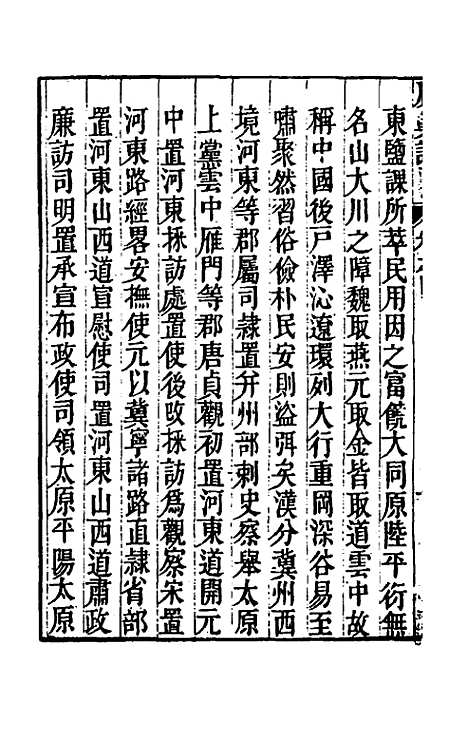 東鹽課所萃民用因之富饒大同原陸平衍無
名山大川之障魏取燕元取金皆取道雲中故
稱中國後戸澤沁遼環列大行重岡深谷易至
嘯聚然習俗儉朴民安則盜弭矣漢分冀州西
境河東等郡屬司隸置并州部刺史察舉太原
上黨雲中雁門等郡唐貞觀初置河東道開元
中置河東採訪處置使後攺採訪爲觀察宋置
河東路經畧安撫使元以冀寧諸路直隸省部
置河東山西道宣慰使司置河東山西道肅政
廉訪司明置承宣布政使司領太原平陽太原